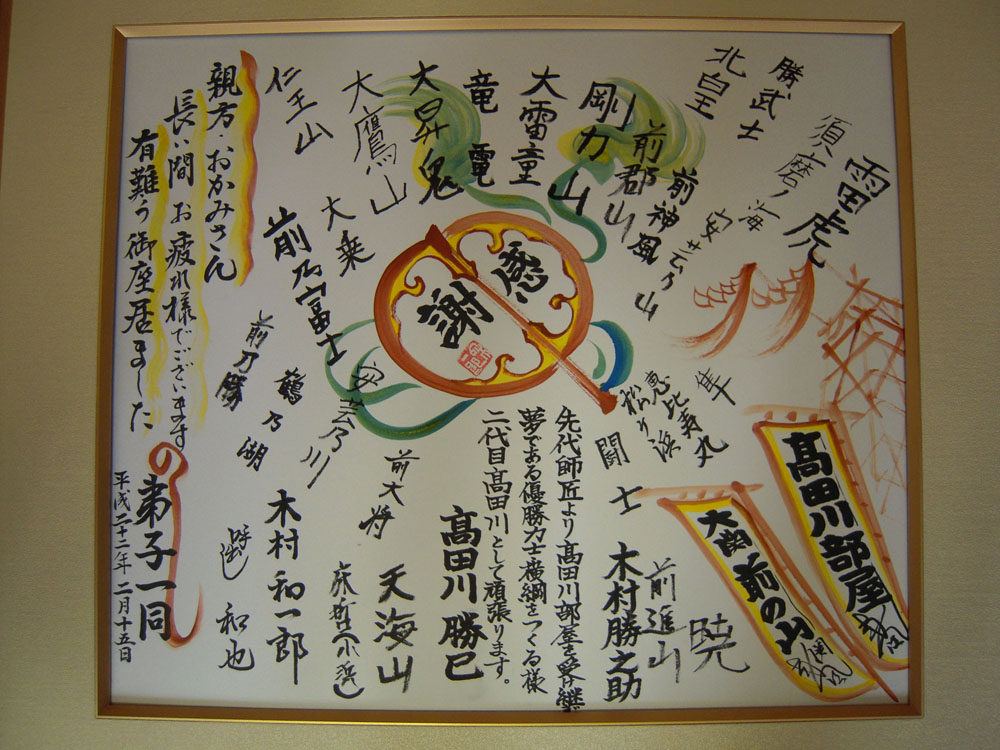 雷虎
須磨ノ海
勝武士
北皇
安芸乃山
前神風
前郡山
剛力山
大雷童
竜電
大昇鬼
大鷹山
大乗
仁王山
前乃富士
親方・おかみさん
長い間お疲れ様でございます
有難う御座居ました
感
謝
隼
恵比寿丸
松乃浜
闘士
前乃勝
鶴乃湖
安芸乃川
前大将
の弟子一同
平成二十二年二月十五日
呼出し 和也
木村和一郎
天海山
高田川勝巳
先代師匠より高田川部屋を受け継ぎ
夢である優勝力士横綱をつくる様
二代目高田川として頑張ります。
木村勝之助
前進山
暁
大関
前の山
髙田川部屋